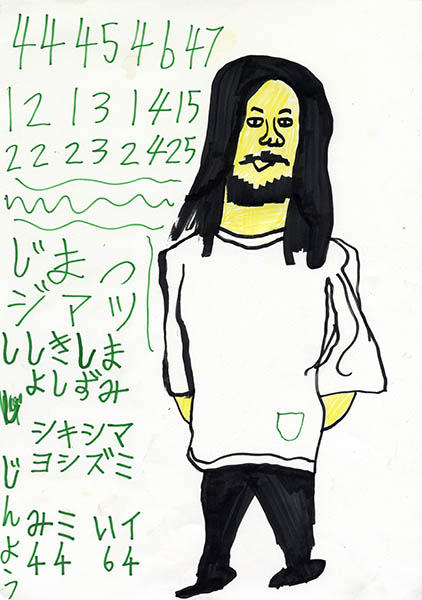 44 45 46 47
12 13 14 15
22 23 24 25
じまっ
ジアツ
ししきしま
よしずみ
シキシマ
ヨシズミ
じんよう
みミ いイ
44 64